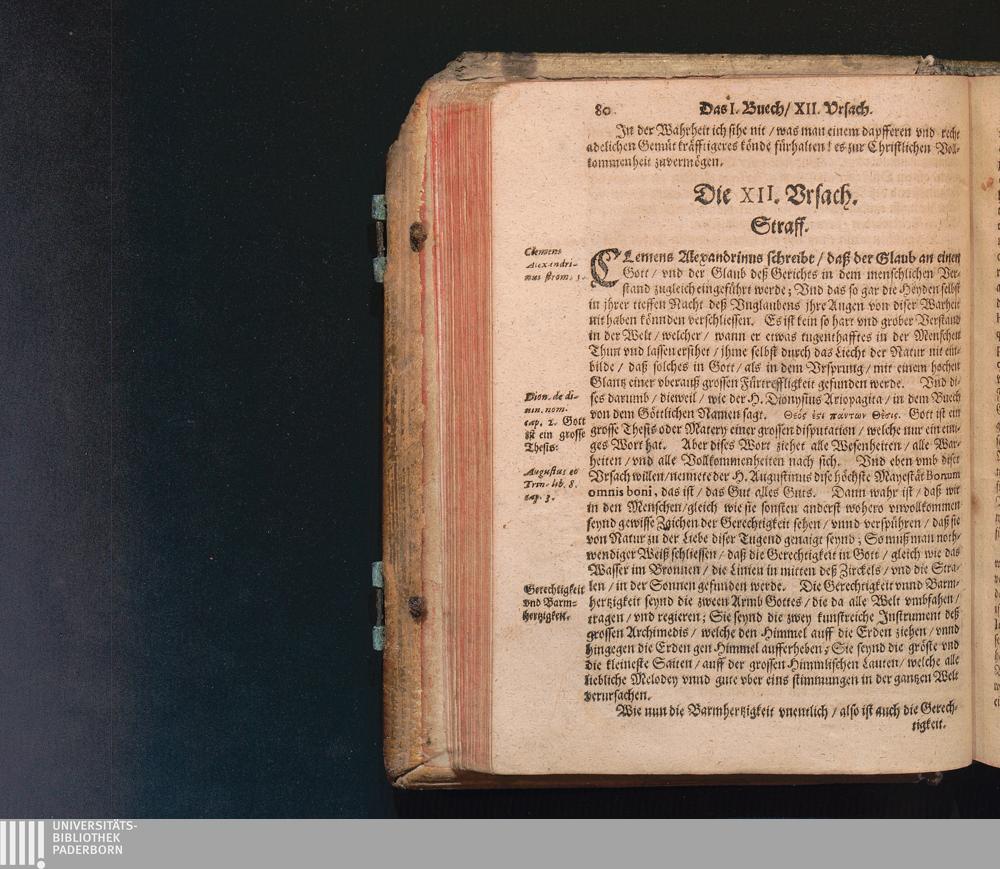 80 Das I. Buech/ XII. Vrsach.
In der Wahrheit ich sihe nit / was man einem dapfferen vnd recht
adelichen Gemüt kräfftigeres könde fürhalten / es zur Christlichen Voll-
kommenheit zuvermögen.
Die XII. Vrsach.
Straff.
Clemens
Alexandri-
nus strom. 5.
CLemens Alexandrinus schreibe / daß der Glaub an einen
Gott / vnd der Glaub deß Gerichts in dem menschlichen Ver-
stand zugleich eingeführt werde; Vnd das so gar die Heyden selbst
in jhrer tieffen Nacht deß Vnglaubens jhre Augen von diser Warheit
nit haben könnden verschliessen. Es ist kein so hart vnd grober Verstand
in der Welt / welcher / wann er etwas tugenthafftes in der Menschen
Thun vnd lassen ersihet / jhme selbst durch das Liecht der Natur nit ein-
bilde / daß solches in Gott / als in dem Vrsprung / mit einem hochen
Glantz einer vberauß grossen Fürtreffligkeit gefunden werde. Vnd di-
ses darumb / dieweil / wie der H. Dionysius Ariopagita / in dem Buech
von dem Göttlichen Namen sagt. Θεός ἐςι πάντων Θέσις. Gott ist ein
grosse Thesis oder Matery einer grossen disputation / welche nur ein eini-
ges Wort hat. Aber dises Wort ziehet alle Wesenheiten / alle War-
heiten / vnd alle Vollkommenheiten nach sich. Vnd eben vmb diser
Vrsach willen / nennete der H. Augustinus dise höchste Mayestät Bonum
omnis boni, das ist / das Gut alles Guts. Dann wahr ist / daß wir
in den Menschen / gleich wie sie sonsten anderst wohero vnvollkommen
seynd gewisse Zaichen der Gerechtigkeit sehen / vnnd verspühren / daß sie
von Natur zu der Liebe diser Tugend genaigt seynd; So muß man noth-
wendiger Weiß schliessen / daß die Gerechtigkeit in Gott / gleich wie das
Wasser im Bronnen / die Linien in mitten deß Zirckels / vnd die Stra-
len / in der Sonnen gefunden werde. Die Gerechtigkeit vnnd Barm-
hertzigkeit seynd die zween Armb Gottes / die da alle Welt vmbfahen /
tragen / vnd regieren; Sie seynd die zwey kunstreiche Instrument deß
grossen Archimedis / welche den Himmel auff die Erden ziehen / vnnd
hingegen die Erden gen Himmel aufferheben; Sie seynd die gröste vnd
die kleineste Saiten / auff der grossen Himmlischen Lauten / welche alle
liebliche Melodey vnnd gute vber eins stimmungen in der gantzen Welt
verursachen.
Dion. de di-
uin. nom.
cap. 2. Gott
ist ein grosse
Thesis.
Augustus et
Trin. lib. 8.
cap. 3.
Gerechtigkeit
vnd Barm-
hertzigkeit.
Wie nun die Barmhertzigkeit vnentlich / also ist auch die Gerech-
tigkeit.
UNIVERSITÄTS-
BIBLIOTHEK
PADERBORN